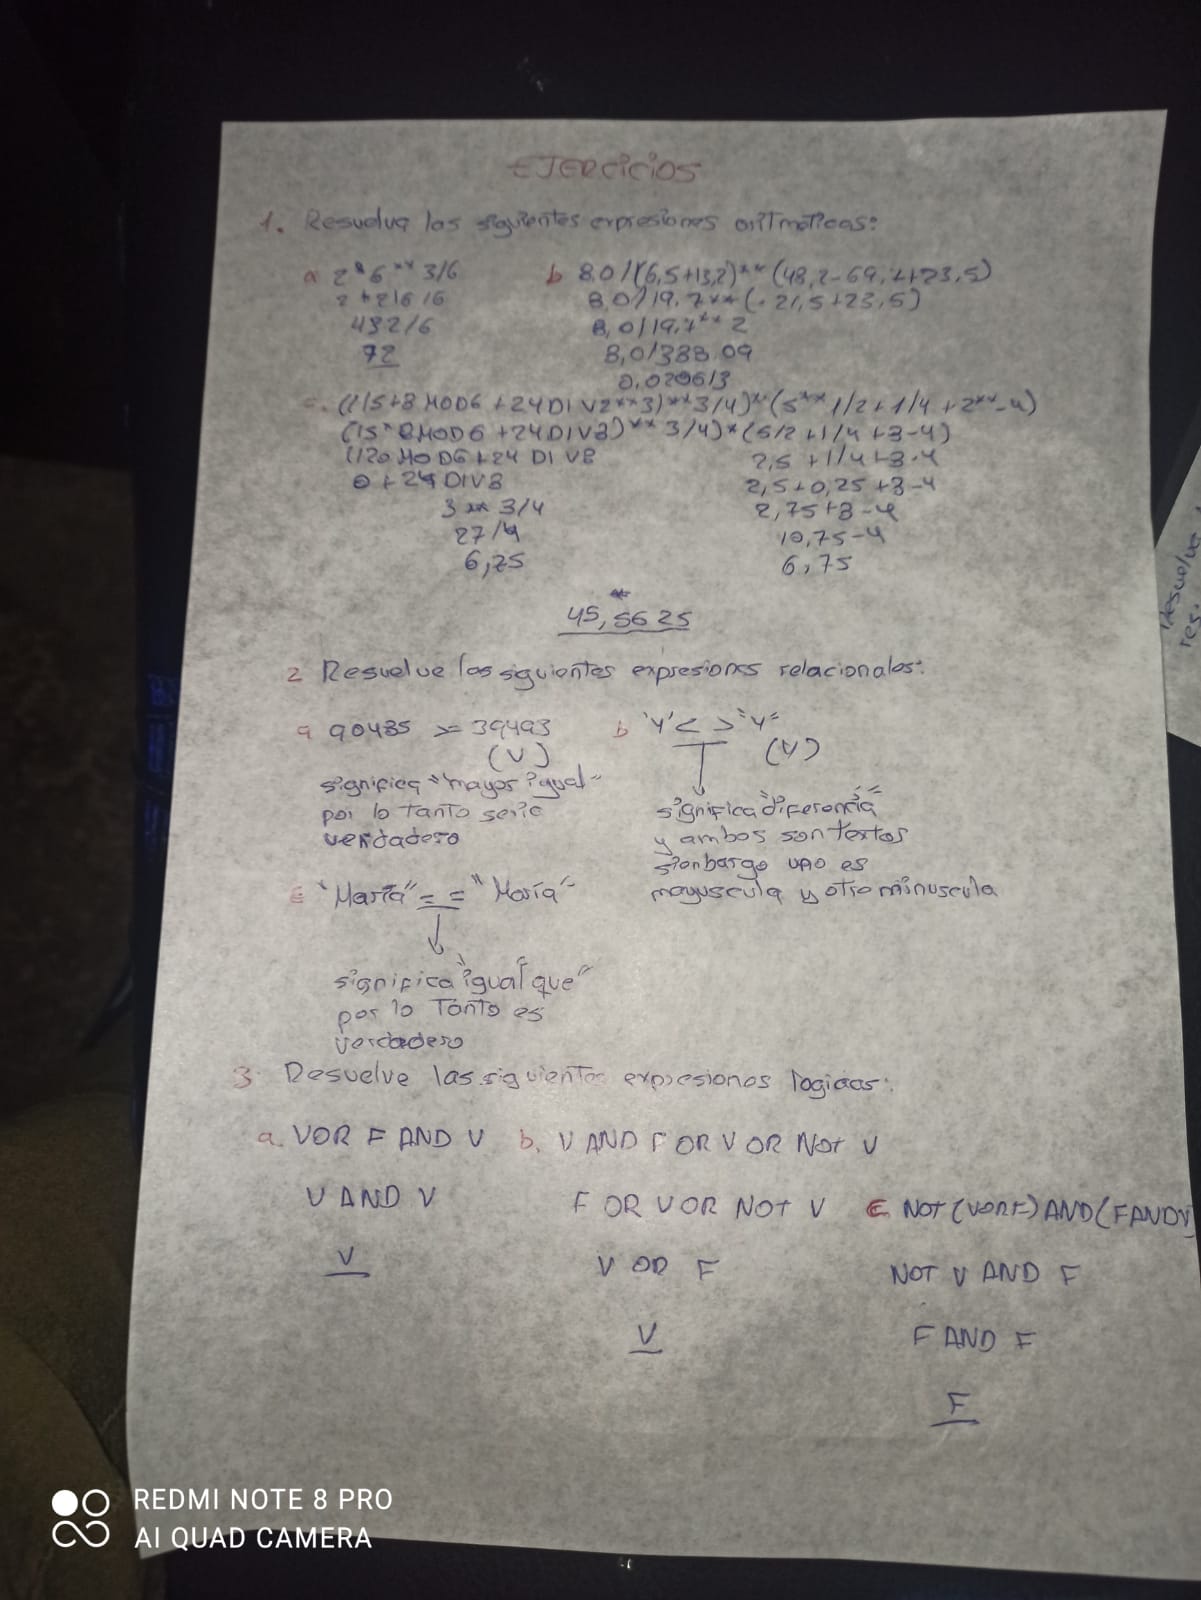 EJERCICIOS
1. Resuelva las siguientes expresiones aritmeticas:
a 2*6** 3/6
2*216/6
432/6
72
b 8.0/(6,5+13,2)**(48,2-69,7+23,5)
8.0/19.7**(-21,5+23,5)
8,0/19,7** 2
8,0/388.09
0,020613
c. ((15*8 MOD6 +24DIV2**3)**3/4)*(5** 1/2+1/4 +2**-4)
(15*8MOD6 +24DIV8)** 3/4)*(5/2 +1/4 +8-4)
(120 MOD6+24 DIV8
0+24DIV8
3 ** 3/4
27/4
6,75
2,5 +1/4+8-4
2,5+0,25 +8-4
2,75+8-4
10,75-4
6,75
*
45,5625
2 Resuelve las siguientes expresiones relacionales:
a 90485 >= 39493
(V)
significa "mayor igual"
por lo tanto seria
verdadero
b 'Y'< >"y"
(V)
significa "diferencia"
y ambos son textos
sienbargo uno es
mayuscula y otro minuscula
c "María"= = "María"
significa "igual que"
por lo tanto es
verdadero
3. Resuelve las siguientes expresiones logicas:
a. V OR F AND V
V AND V
V
b. V AND F OR V OR NOT V
F OR V OR NOT V
V OR F
V
c NOT (V OR F) AND (F AND V)
NOT V AND F
F AND F
F
REDMI NOTE 8 PRO
AI QUAD CAMERA